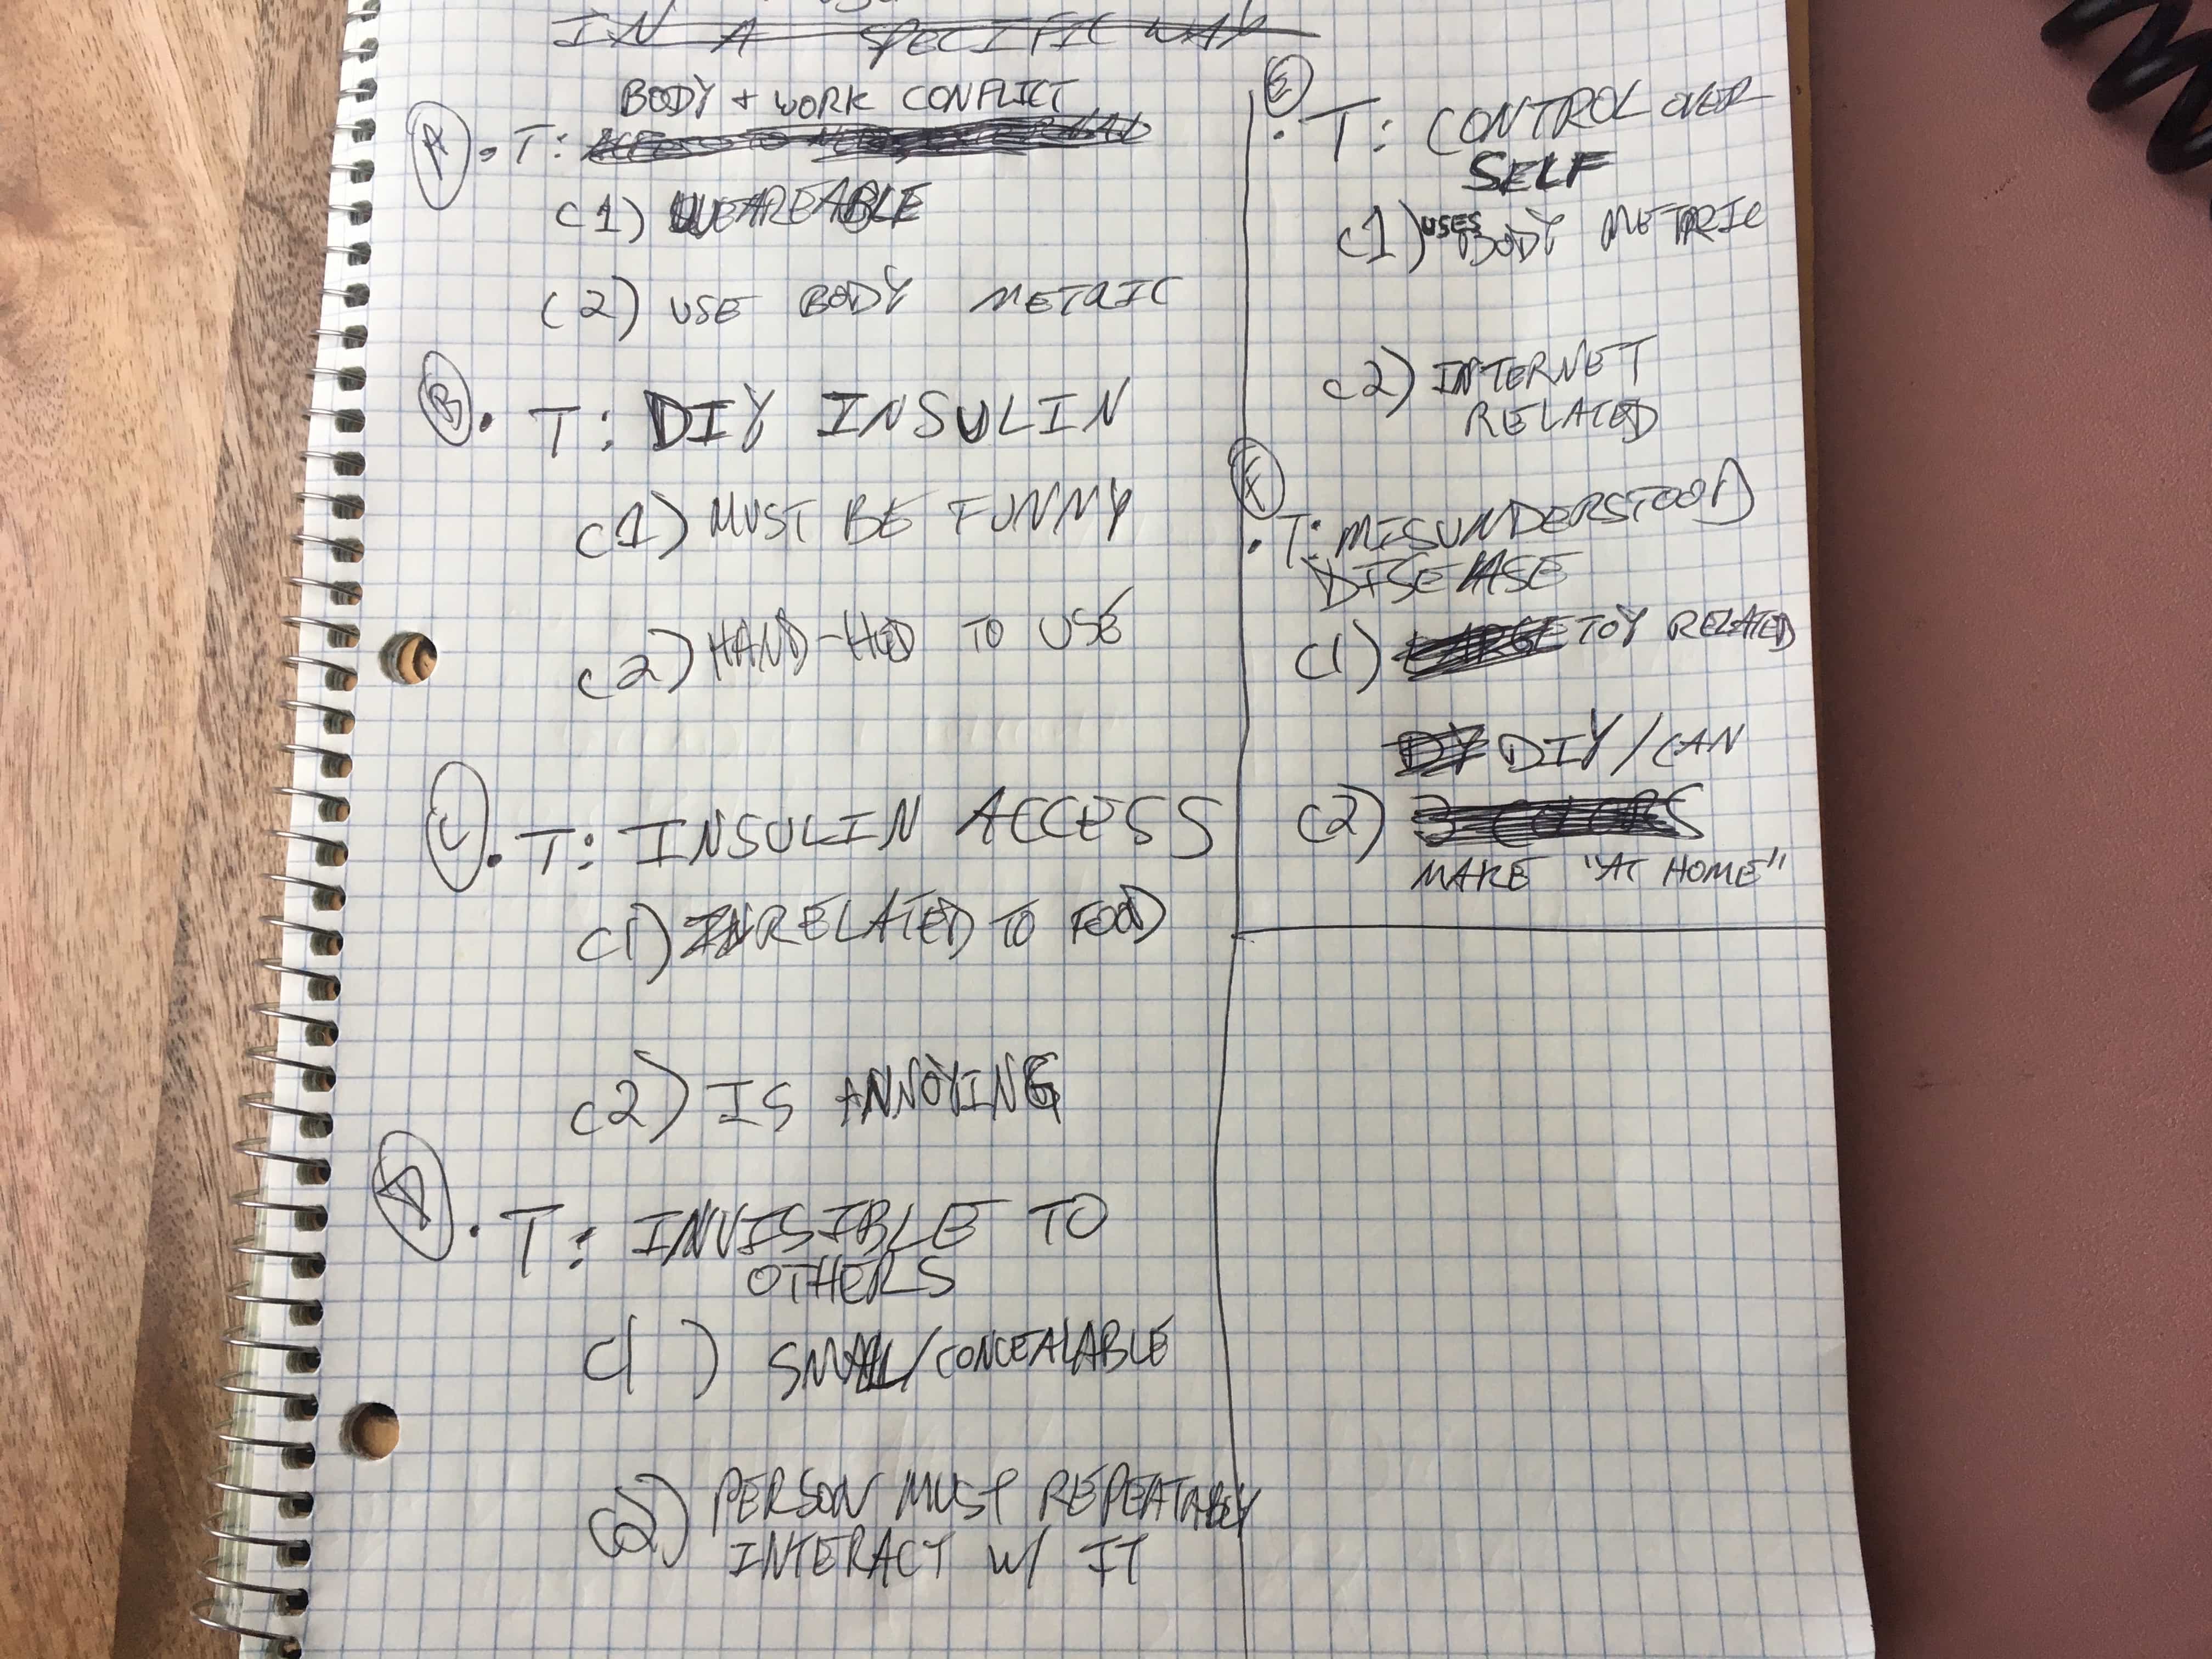 IN A SPECIFIC WAY
BODY + WORK CONFLICT
A • T:
C1) WEAREABLE
C2) USE BODY METRIC
B • T: DIY INSULIN
C1) MUST BE FUNNY
C2) HAND-HELD TO USE
C • T: INSULIN ACCESS
C1) RELATED TO FOOD
C2) IS ANNOYING
D • T: INVISIBLE TO
OTHERS
C1) SMALL/CONCEALABLE
C2) PERSON MUST REPEATABLY
INTERACT W/ IT
E
• T: CONTROL OVER
SELF
C1) USES BODY METRIC
C2) INTERNET
RELATED
F
• T: MISUNDERSTOOD
DISEASE
C1) LARGE TOY RELATED
DY DIY/CAN
C2) 3 COLORS
MAKE "AT HOME"